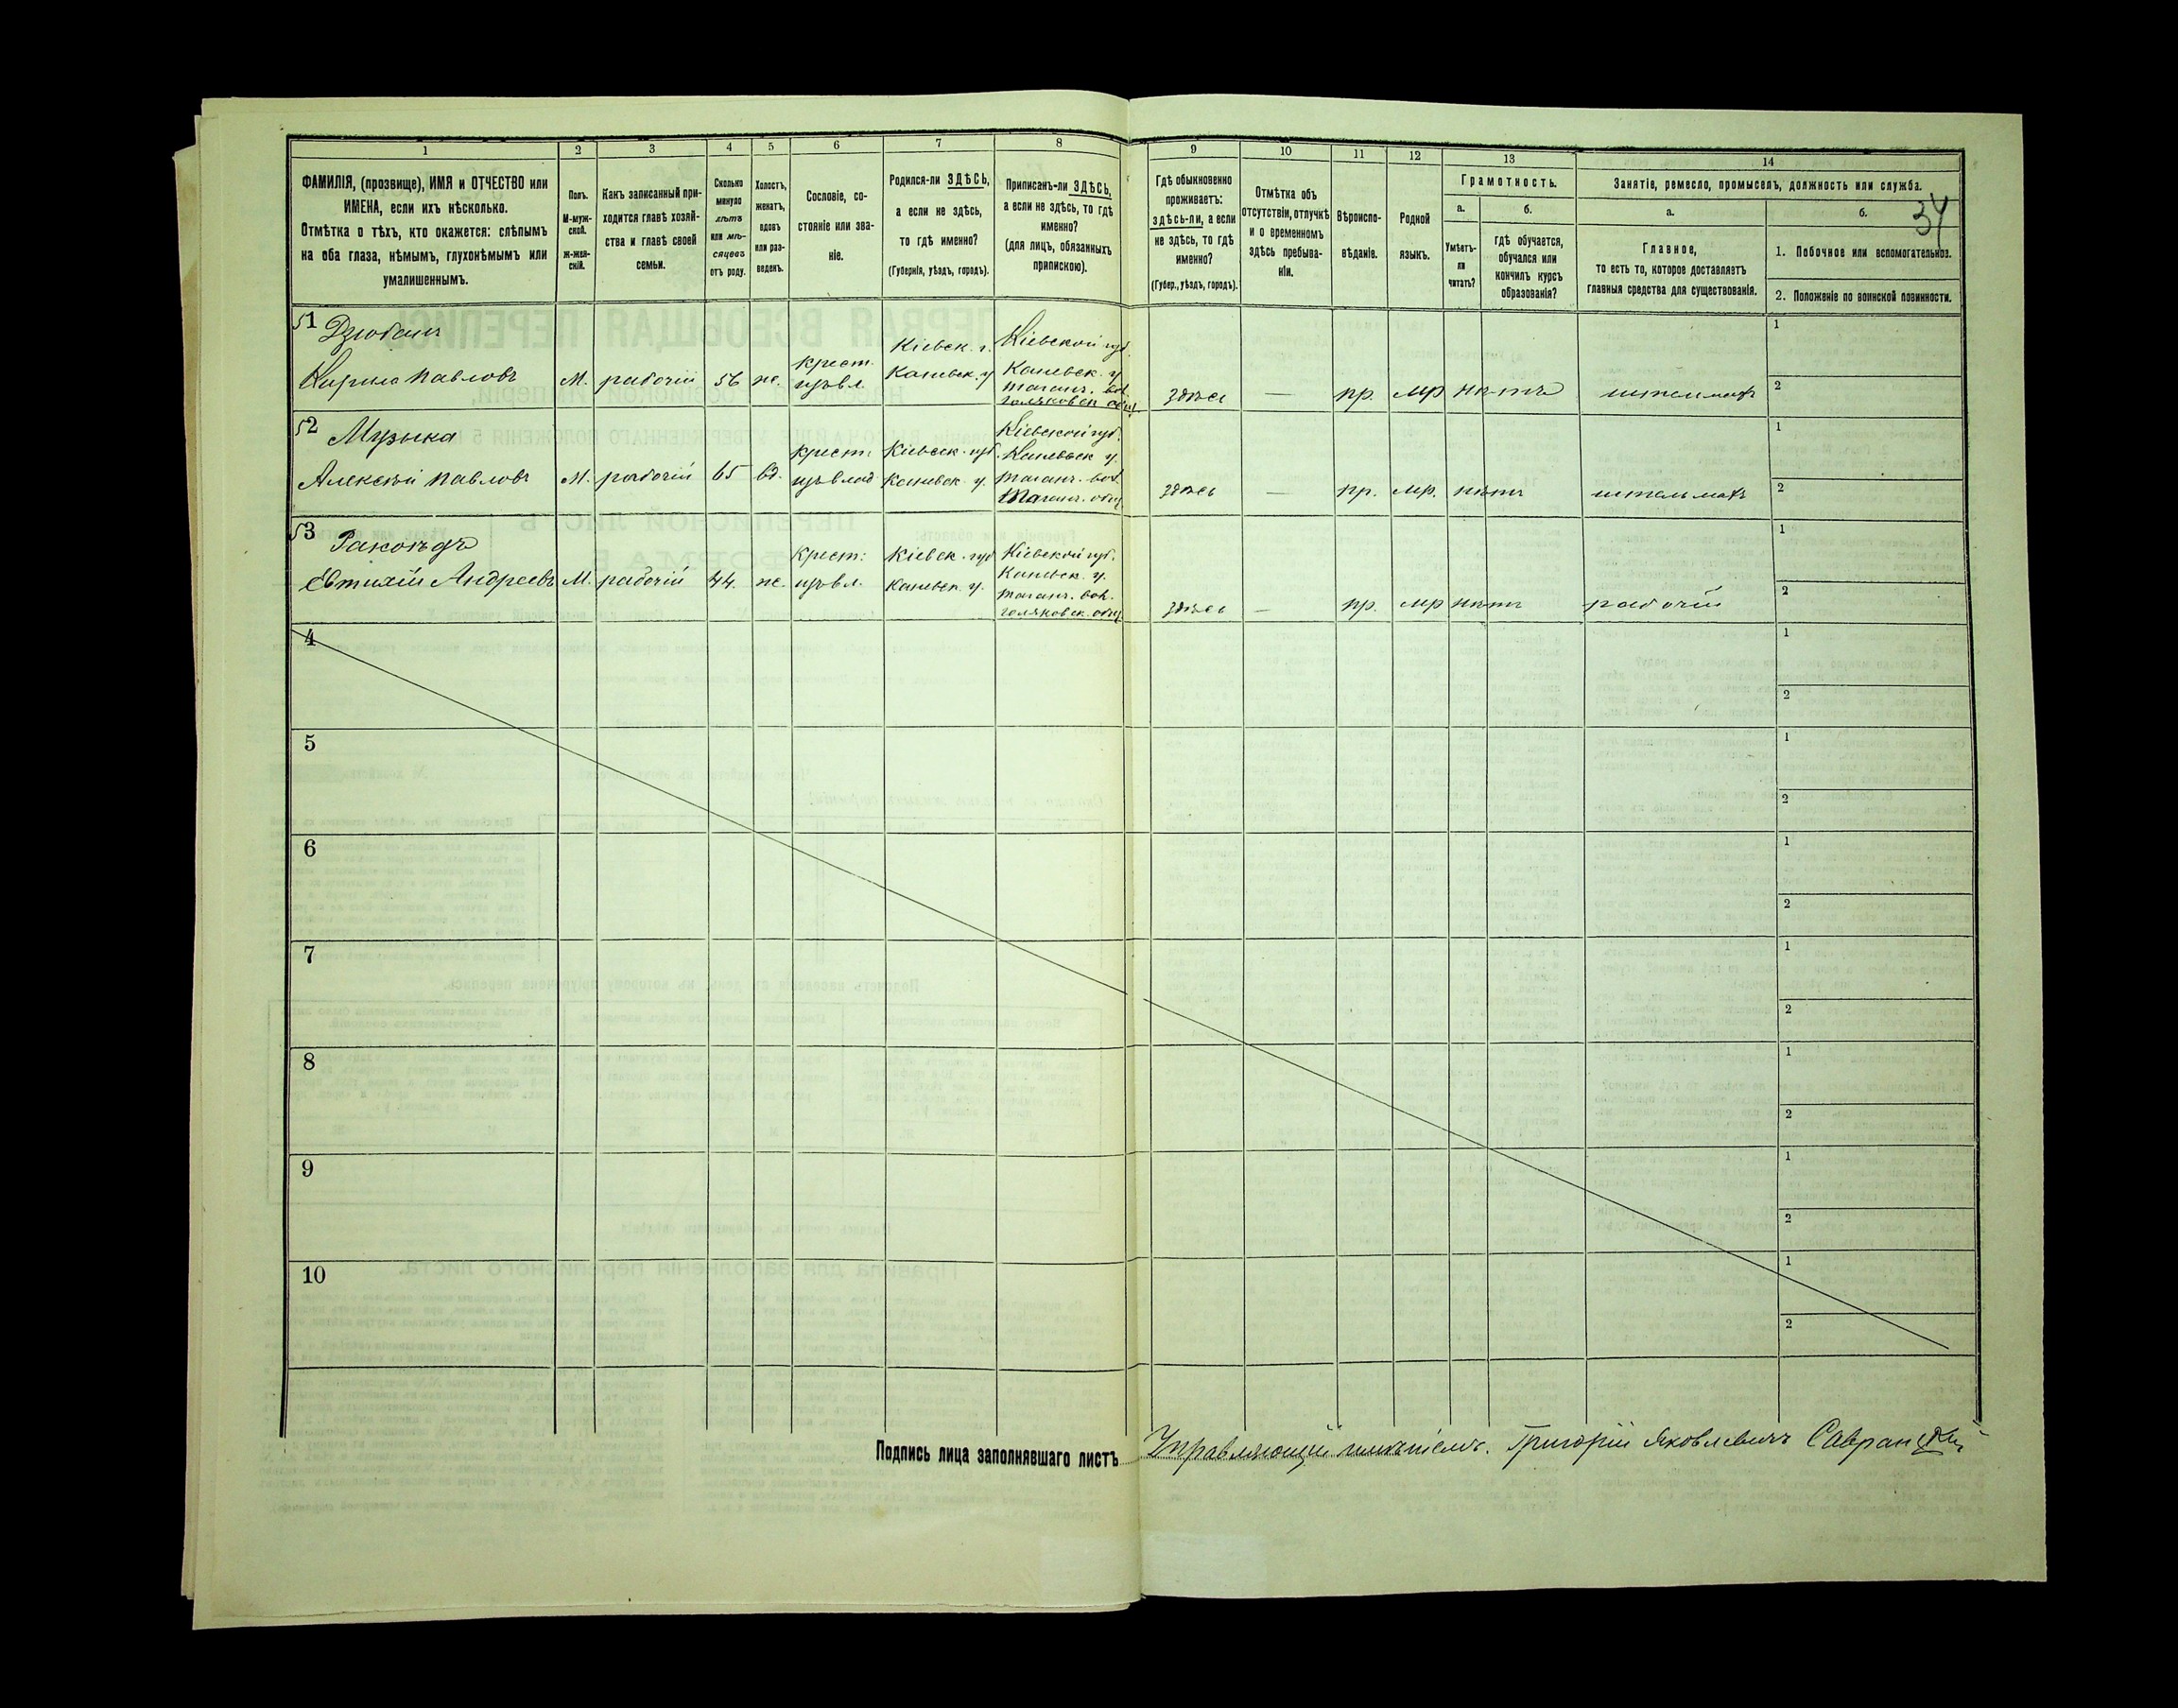 34
1 2 3 4 5 6 7 8 9 10 11 12 13 14
ФАМИЛІЯ, (прозвище), ИМЯ и ОТЧЕСТВО или
ИМЕНА, если ихъ нѣсколько.
Отмѣтка о тѣхъ, кто окажется: слѣпымъ
на оба глаза, нѣмымъ, глухонѣмымъ или
умалишеннымъ.
Полъ.
М-муж-
ской.
ж-жен-
скій.
Какъ записанный при-
ходится главѣ хозяй-
ства и главѣ своей
семьи.
Сколько
минуло
лѣтъ
или мѣ-
сяцевъ
отъ роду.
Холостъ,
женатъ,
вдовъ
или раз-
веденъ.
Сословіе, со-
стояніе или зва-
ніе.
Родился-ли ЗДѢСЬ,
а если не здѣсь,
то гдѣ именно?
(Губернія, уѣздъ, городъ).
Приписанъ-ли ЗДѢСЬ,
а если не здѣсь, то гдѣ
именно?
(для лицъ, обязанныхъ
припискою).
Гдѣ обыкновенно
проживаетъ:
здѣсь-ли, а если
не здѣсь, то гдѣ
именно?
(Губер., уѣздъ, городъ).
Отмѣтка объ
отсутствіи, отлучкѣ
и о временномъ
здѣсь пребыва-
ніи.
Вѣроиспо-
вѣданіе.
Родной
языкъ.
Грамотность.
а.
Умѣетъ-
ли
читать?
б.
гдѣ обучается,
обучался или
кончилъ курсъ
образованія?
Занятіе, ремесло, промыселъ, должность или служба.
а.
Главное,
то есть то, которое доставляетъ
главныя средства для существованія.
б.
1. Побочное или вспомогательное.
2. Положеніе по воинской повинности.
51 Дзюбанъ
Кирило Павловъ М. рабочій 56 ж. крест. изъ вл. Кіевск. г. Каневск. у Кіевской губ.
Каневск. у
таганч. вол.
голяковск общ.
здѣсь — пр. мр нѣтъ штельмахъ
1
2
52 Музыка
Алексѣй Павловъ М. рабочій 65 вд. крест. изъ влад Кіевск. губ. Каневск. у. Кіевской губ.
Каневск у.
таганч. вол.
Таганч. общ
здѣсь — пр. мр. нѣтъ штельмахъ
1
2
53 Ракоѣдъ
Евтихій Андреевъ М. рабочій 44. ж. крест: изъ вл. Кіевск. губ Каневск. у. Кіевской губ.
Каневск. у.
таганч. вол.
голяковск. общ
здѣсь — пр. мр нѣтъ рабочій
1
2
4
1
2
5
1
2
6
1
2
7
1
2
8
1
2
9
1
2
10
1
2
Подпись лица заполнявшаго листъ Управляющій имѣніемъ. Григорій Яковлевичъ Савранскій